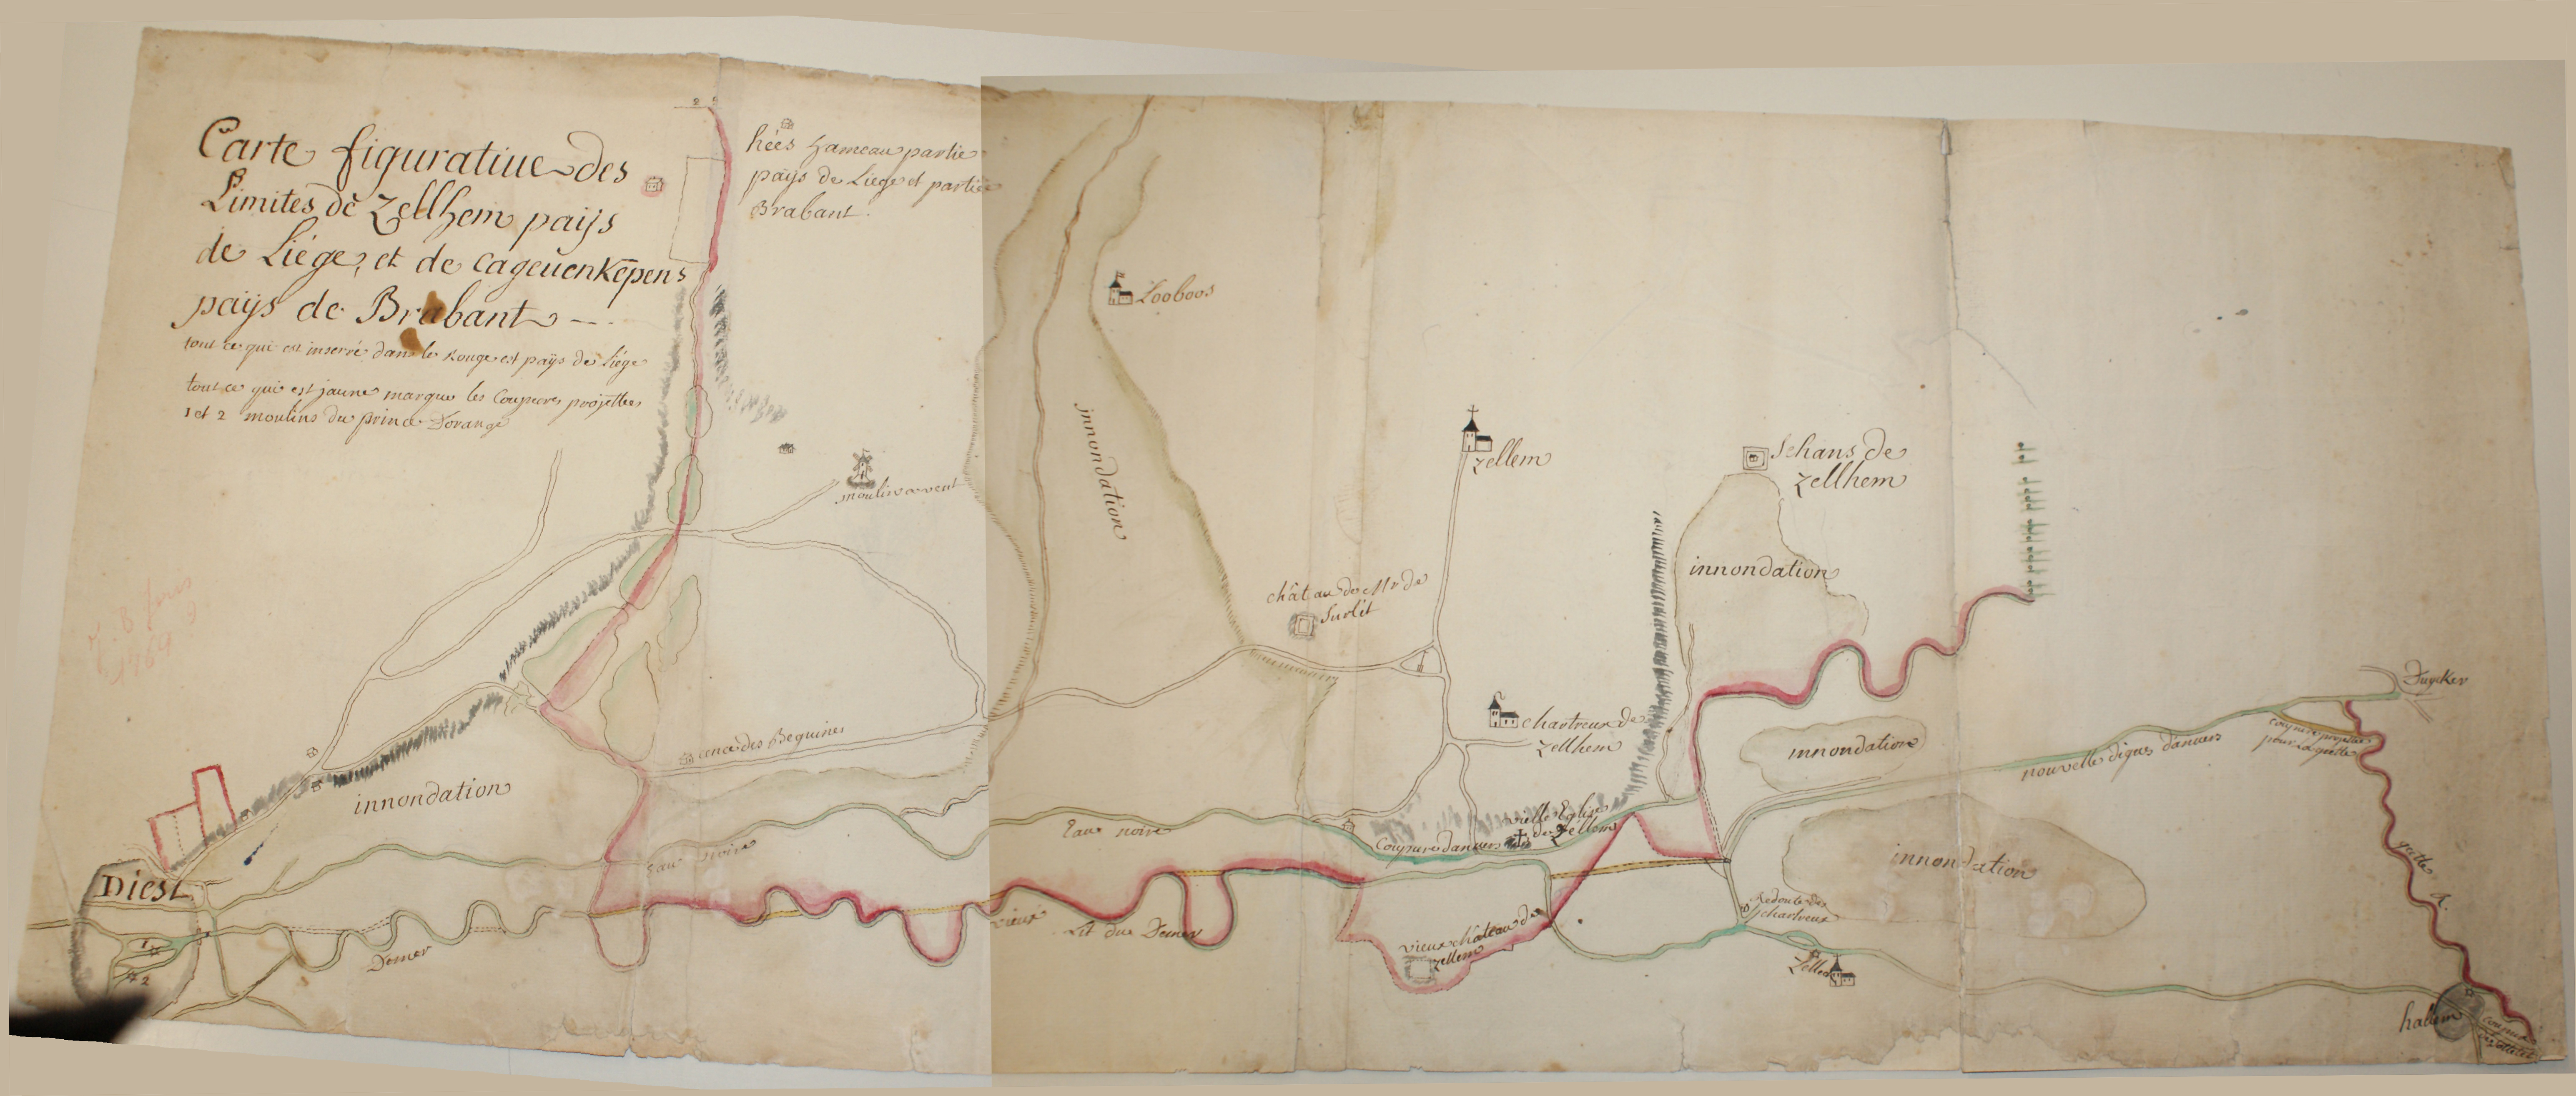 Carte figuratiue des
Limites de Zellhem païjs
de Liége, et de cageuenkepens
païjs de Brabant
tout ce qui est inserré dans le Rouge est païjs de Liége
tout ce qui est jaune marque les Coupures projettées
1 et 2 moulins du prince D'orange
2
hées hameau partie
païjs de Liege et partie
Brabant.
moulin a vent
Looboos
jnnondation
Zellem
Schans de
Zellhem
innondation
château de Mr de
Surlét
chartreux de
Zellhem
cence des Beguines
innondation
innondation
innondation
Duycker
coupure projettée
pour la gette
nouvelle digue d'anvers
gette R.
Eau noire
Eau noire
Coupure d'anvers
vielle Eglise
de Zellem
Diest
1
2
Demer
vieux Lit du Demer
vieux château de
Zellem
Redoute des
chartreux
Zellem
halem
1769